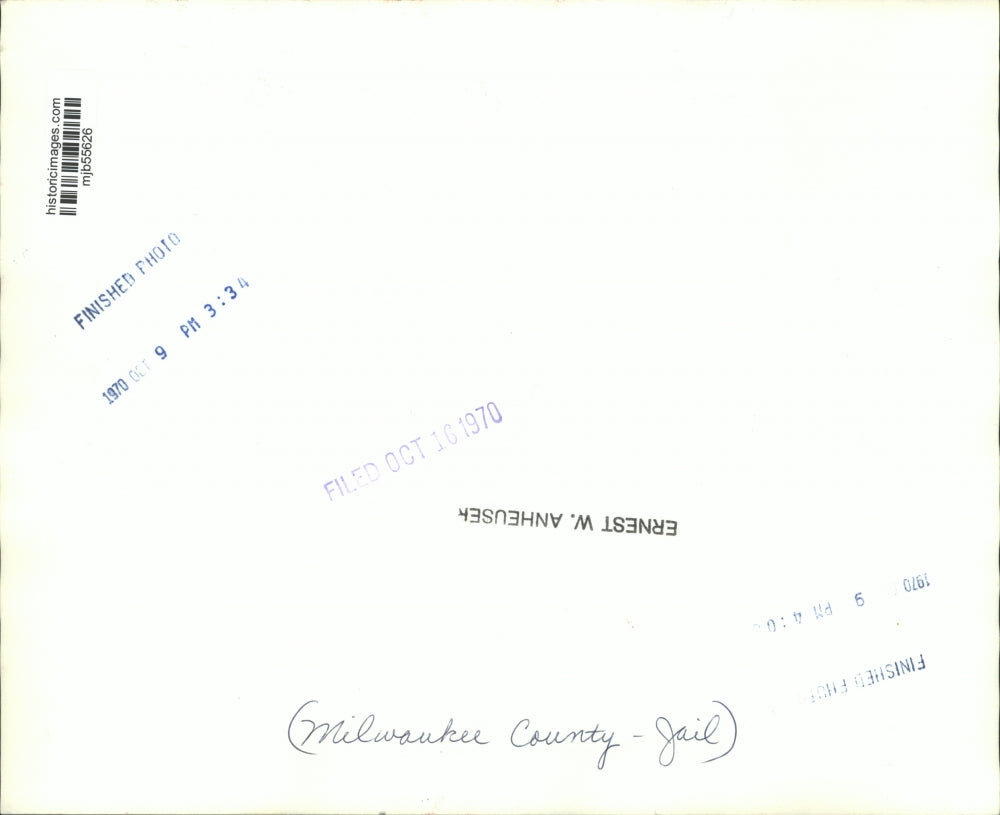 historicimages.com
mjb55626
FINISHED PHOTO
1970 OCT 9 PM 3:34
FILED OCT 16 1970
ERNEST W. ANHEUSER
1970 9 PM 4:0
FINISHED
(Milwaukee County - Jail)